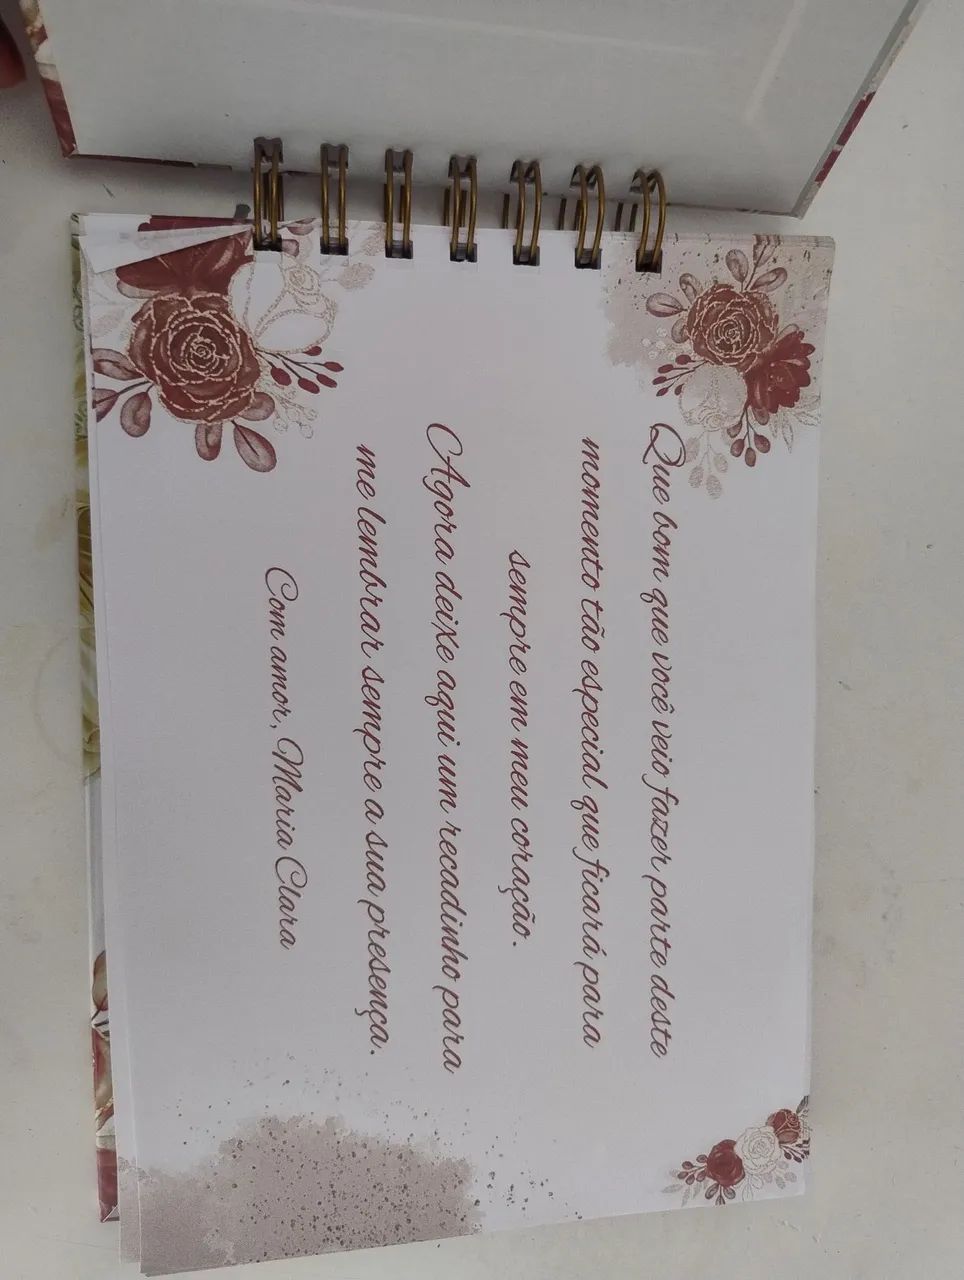 Que bom que você veio fazer parte deste
momento tão especial que ficará para
sempre em meu coração.
Agora deixe aqui um recadinho para
me lembrar sempre a sua presença.
Com amor, Maria Clara